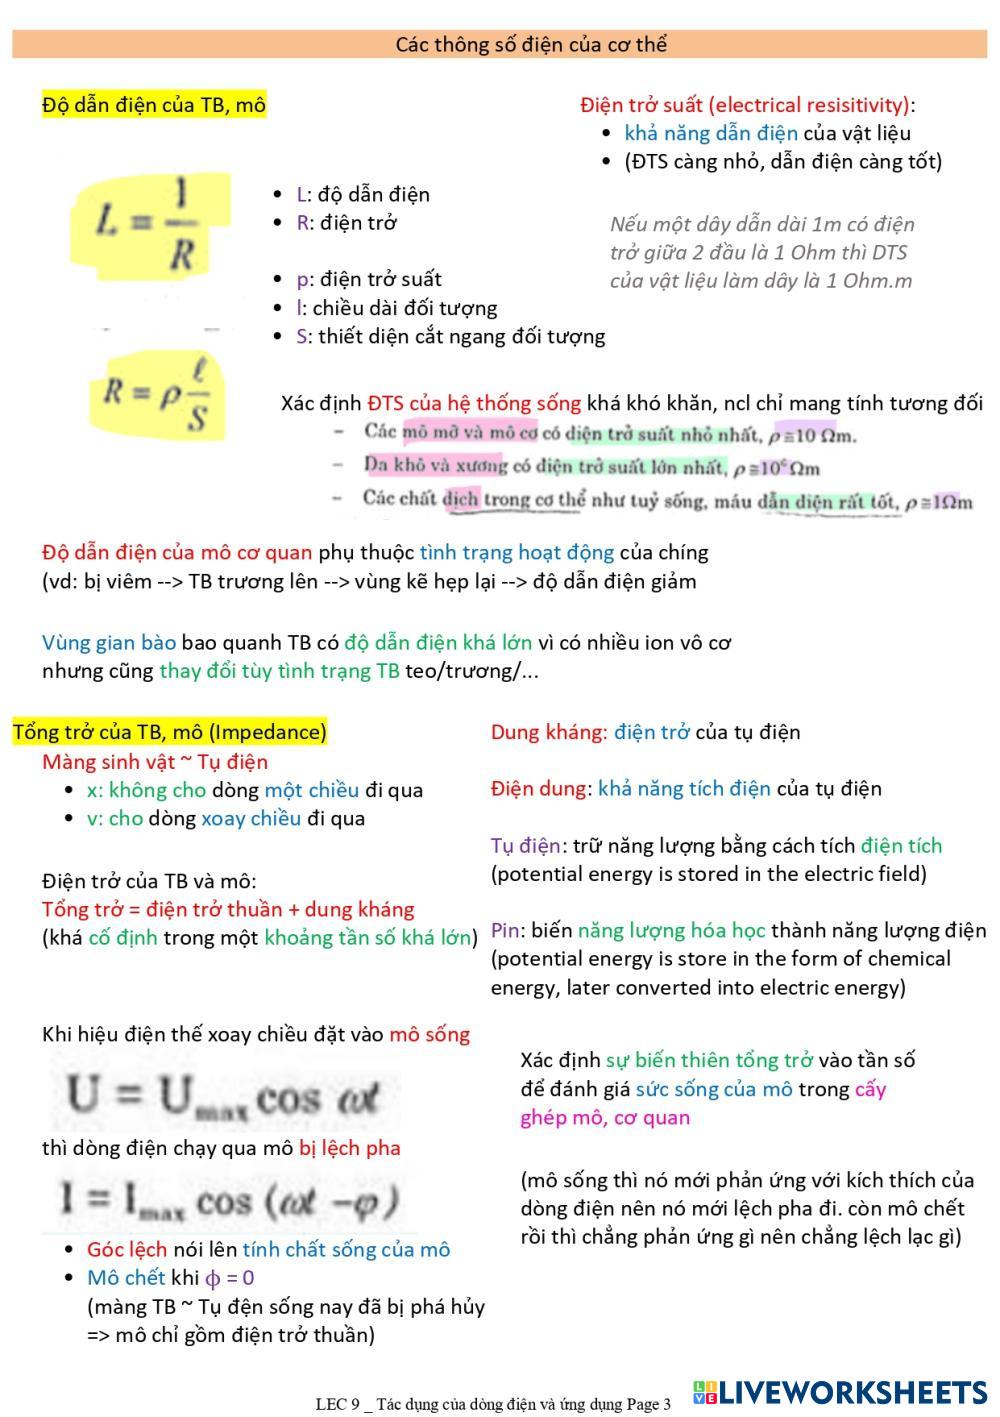 Các thông số điện của cơ thể
Độ dẫn điện của TB, mô
L = 1/R
• L: độ dẫn điện
• R: điện trở
• p: điện trở suất
• l: chiều dài đối tượng
• S: thiết diện cắt ngang đối tượng
R = ρ ℓ/S
Điện trở suất (electrical resisitivity):
• khả năng dẫn điện của vật liệu
• (ĐTS càng nhỏ, dẫn điện càng tốt)
Nếu một dây dẫn dài 1m có điện
trở giữa 2 đầu là 1 Ohm thì DTS
của vật liệu làm dây là 1 Ohm.m
Xác định ĐTS của hệ thống sống khá khó khăn, ncl chỉ mang tính tương đối
– Các mô mỡ và mô cơ có điện trở suất nhỏ nhất, ρ≅10 Ωm.
– Da khô và xương có điện trở suất lớn nhất, ρ≅10⁶Ωm
– Các chất dịch trong cơ thể như tuỷ sống, máu dẫn điện rất tốt, ρ≅1Ωm
Độ dẫn điện của mô cơ quan phụ thuộc tình trạng hoạt động của chíng
(vd: bị viêm --> TB trương lên --> vùng kẽ hẹp lại --> độ dẫn điện giảm
Vùng gian bào bao quanh TB có độ dẫn điện khá lớn vì có nhiều ion vô cơ
nhưng cũng thay đổi tùy tình trạng TB teo/trương/...
Tổng trở của TB, mô (Impedance)
Màng sinh vật ~ Tụ điện
• x: không cho dòng một chiều đi qua
• v: cho dòng xoay chiều đi qua
Điện trở của TB và mô:
Tổng trở = điện trở thuần + dung kháng
(khá cố định trong một khoảng tần số khá lớn)
Dung kháng: điện trở của tụ điện
Điện dung: khả năng tích điện của tụ điện
Tụ điện: trữ năng lượng bằng cách tích điện tích
(potential energy is stored in the electric field)
Pin: biến năng lượng hóa học thành năng lượng điện
(potential energy is store in the form of chemical
energy, later converted into electric energy)
Khi hiệu điện thế xoay chiều đặt vào mô sống
U = Umax cos ωt
thì dòng điện chạy qua mô bị lệch pha
I = Imax cos (ωt –φ)
• Góc lệch nói lên tính chất sống của mô
• Mô chết khi ϕ = 0
(màng TB ~ Tụ đện sống nay đã bị phá hủy
=> mô chỉ gồm điện trở thuần)
Xác định sự biến thiên tổng trở vào tần số
để đánh giá sức sống của mô trong cấy
ghép mô, cơ quan
(mô sống thì nó mới phản ứng với kích thích của
dòng điện nên nó mới lệch pha đi. còn mô chết
rồi thì chẳng phản ứng gì nên chẳng lệch lạc gì)
LEC 9 _ Tác dụng của dòng điện và ứng dụng Page 3
LIVE LIVEWORKSHEETS